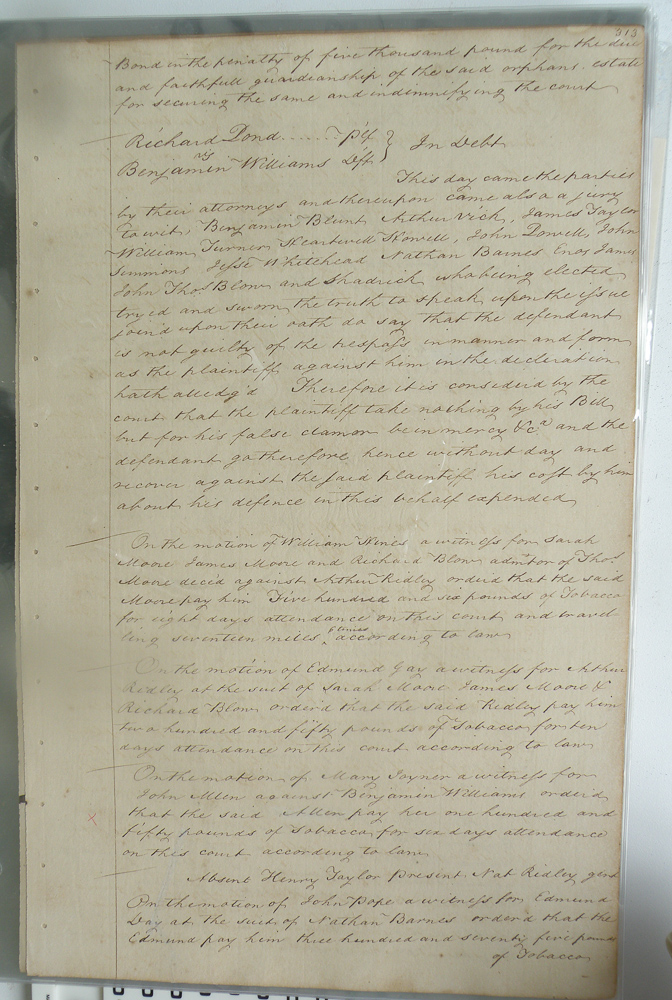 313
Bond in the penalty of five thousand pound for the due
and faithfull guardianship of the said orphans estate
for securing the same and indemnifying the court
Richard Pond ...... Plf } In Debt
vs
Benjamin Williams Dft
This day came the parties
by their attorneys and thereupon came also a jury
to wit, Benjamin Blunt Arthur Vick, James Taylor
William Turner Howell, John Powell, John
Simmons Jesse Whitehead Nathan Barnes Enos James
John Thos Blow and Shadrick who being elected
tryed and sworn the truth to speak upon the issue
join'd upon their oath do say that the defendant
is not guilty of the trespass in manner and form
as the plaintiff against him in the declaration
hath alledg'd Therefore it is considered by the
court that the plaintiff take nothing by his Bill
but for his false clamor be in mercy &ca and the
defendant go therefore hence without day and
recover against the said plaintiff his cost by him
about his defence in this behalf expended
On the motion of William Hines a witness for Sarah
Moore James Moore and Richard Blow admtor of Thos.
Moore dec'd against Arthur Ridley order'd that the said
Moore pay him Five hundred and six pounds of Tobacco
for eight days attendance on this court and travel-
ling seventeen miles 6 times according to law
On the motion of Edmund Gay a witness for Arthur
Ridley at the suit of Sarah Moore James Moore &
Richard Blow order'd that the said Ridley pay him
two hundred and fifty pounds of Tobacco for ten
days attendance on this court according to law
On the motion of Mary Joyner a witness for
John Allen against Benjamin Williams order'd
that the said Allen pay her one hundred and
fifty pounds of Tobacco for six days attendance
on this court according to law
Absent Henry Taylor Present Nat Ridley gent
On the motion of John Pope a witness for Edmund
Day at the suit of Nathan Barnes order'd that the
Edmund pay him three hundred and seventy five pounds
of Tobacco